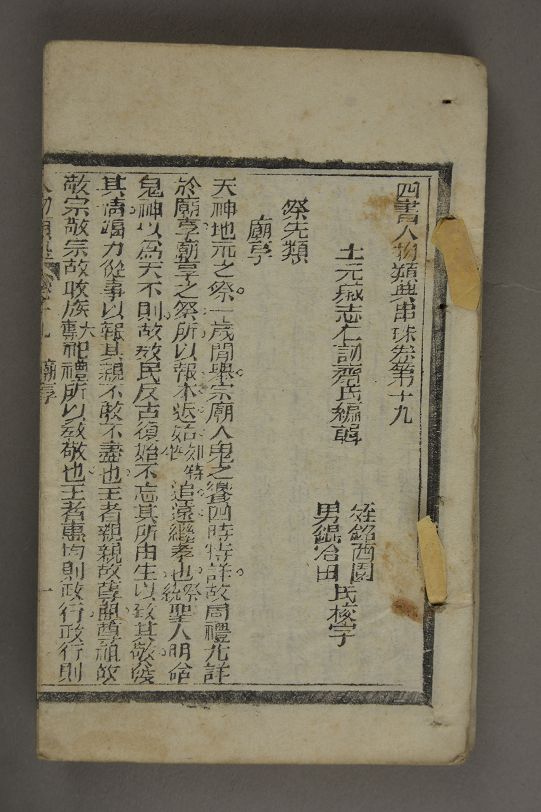 四書人物類典串珠卷第十九
上元臧志仁訒齋氏編輯
姪銘西園
男錕冶田 氏校字
祭先類
廟享
天神地元之祭一歲間舉宗廟人鬼之饗四時特詳故周禮尤詳
於廟享廟享之祭所以報本返始郊特牲追遠繼孝也祭統聖人明命
鬼神以爲天下則故敎民反古復始不忘其所由生以致其敬發
其情竭力從事以報其親不敢不盡也王者親親故尊祖尊祖故
敬宗敬宗故收族大傳祀禮所以敎敬也王者惠均則政行政行則
卷十九 廟享 一